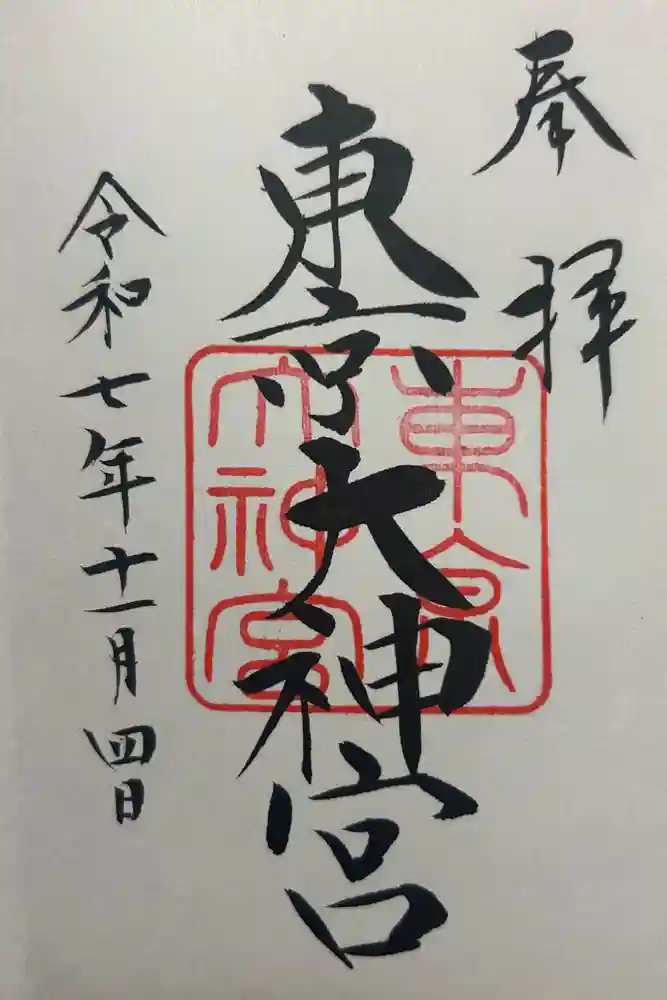 奉拝
東京大神宮
東京
大神宮
令和七年十一月四日